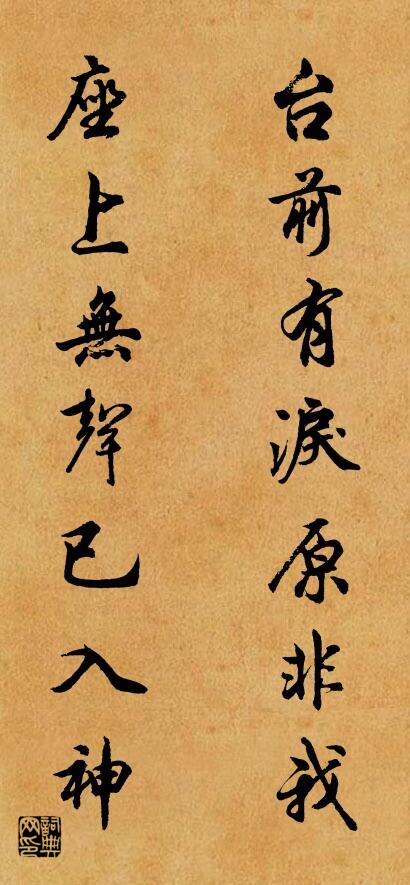 台前有淚原非我
座上無聲已入神
詞典網印